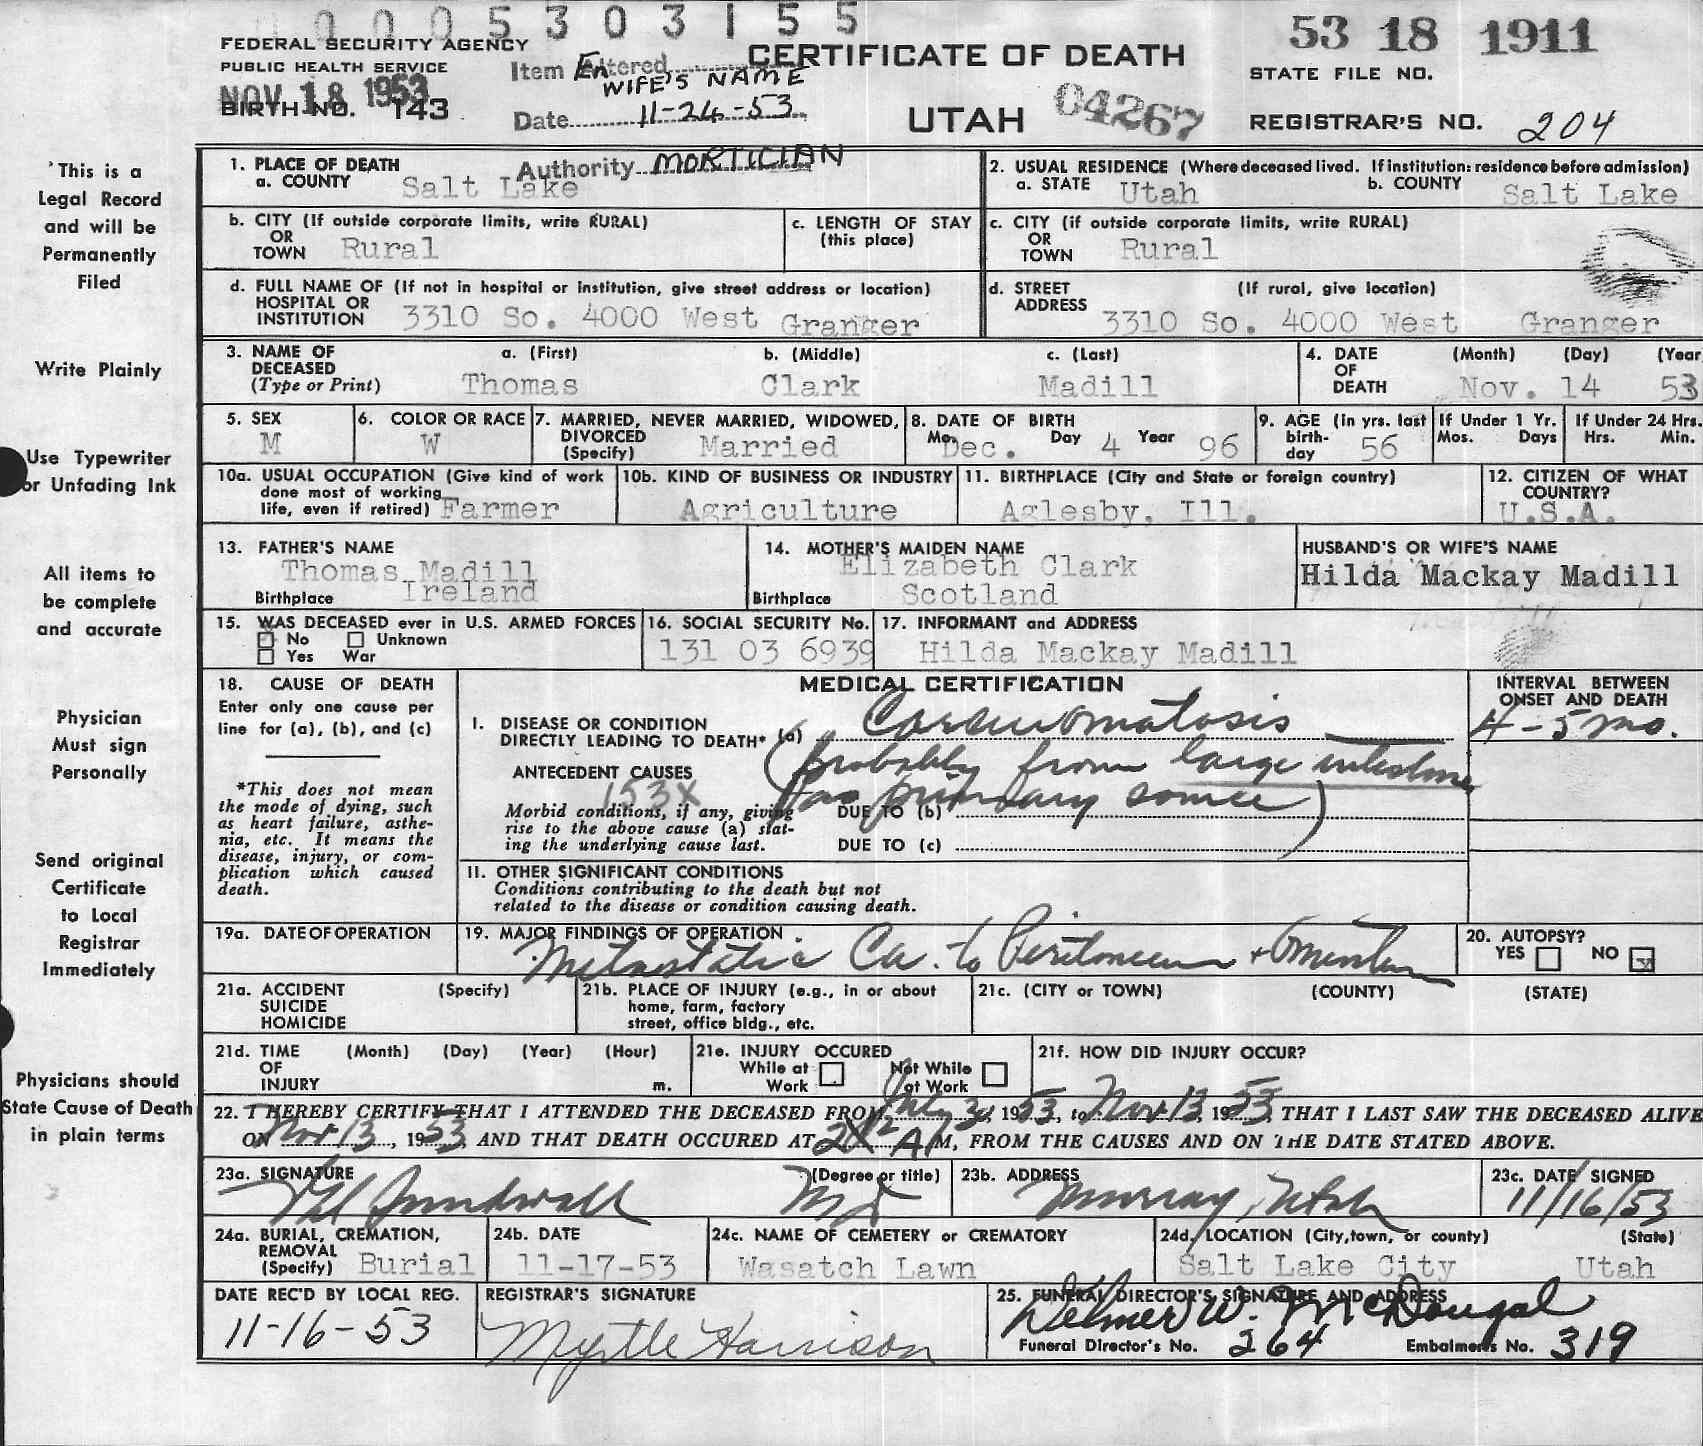 00005303155
FEDERAL SECURITY AGENCY
PUBLIC HEALTH SERVICE
NOV 18 1953
BIRTH NO. 143
Item Entered
WIFE'S NAME
Date 11-24-53
Authority MORTICIAN
CERTIFICATE OF DEATH
UTAH 04267
53 18 1911
STATE FILE NO.
REGISTRAR'S NO. 204
This is a
Legal Record
and will be
Permanently
Filed
Write Plainly
Use Typewriter
or Unfading Ink
All items to
be complete
and accurate
Physician
Must sign
Personally
Send original
Certificate
to Local
Registrar
Immediately
Physicians should
State Cause of Death
in plain terms
1. PLACE OF DEATH
a. COUNTY Salt Lake
2. USUAL RESIDENCE (Where deceased lived. If institution: residence before admission)
a. STATE Utah b. COUNTY Salt Lake
b. CITY (If outside corporate limits, write RURAL)
OR
TOWN Rural
c. LENGTH OF STAY
(this place)
c. CITY (if outside corporate limits, write RURAL)
OR
TOWN Rural
d. FULL NAME OF (If not in hospital or institution, give street address or location)
HOSPITAL OR
INSTITUTION 3310 So. 4000 West Granger
d. STREET (If rural, give location)
ADDRESS 3310 So. 4000 West Granger
3. NAME OF a. (First) b. (Middle) c. (Last)
DECEASED
(Type or Print) Thomas Clark Madill
4. DATE (Month) (Day) (Year
OF
DEATH Nov. 14 53
5. SEX
M
6. COLOR OR RACE
W
7. MARRIED, NEVER MARRIED, WIDOWED,
DIVORCED
(Specify) Married
8. DATE OF BIRTH
Mo. Dec. Day 4 Year 96
9. AGE (in yrs. last
birth-
day 56
If Under 1 Yr.
Mos. Days
If Under 24 Hrs.
Hrs. Min.
10a. USUAL OCCUPATION (Give kind of work
done most of working
life, even if retired) Farmer
10b. KIND OF BUSINESS OR INDUSTRY
Agriculture
11. BIRTHPLACE (City and State or foreign country)
Aglesby, Ill.
12. CITIZEN OF WHAT
COUNTRY?
U.S.A.
13. FATHER'S NAME
Thomas Madill
Birthplace Ireland
14. MOTHER'S MAIDEN NAME
Elizabeth Clark
Birthplace Scotland
HUSBAND'S OR WIFE'S NAME
Hilda Mackay Madill
15. WAS DECEASED ever in U.S. ARMED FORCES
No Unknown
Yes War
16. SOCIAL SECURITY No.
131 03 6939
17. INFORMANT and ADDRESS
Hilda Mackay Madill
18. CAUSE OF DEATH
Enter only one cause per
line for (a), (b), and (c)
*This does not mean
the mode of dying, such
as heart failure, asthe-
nia, etc. It means the
disease, injury, or com-
plication which caused
death.
MEDICAL CERTIFICATION
I. DISEASE OR CONDITION
DIRECTLY LEADING TO DEATH* (a) Carcinomatosis
(probably from large intestine
as primary source)
ANTECEDENT CAUSES
153X
Morbid conditions, if any, giving
rise to the above cause (a) stat-
ing the underlying cause last.
DUE TO (b)
DUE TO (c)
INTERVAL BETWEEN
ONSET AND DEATH
4-5 mo.
11. OTHER SIGNIFICANT CONDITIONS
Conditions contributing to the death but not
related to the disease or condition causing death.
19a. DATE OF OPERATION
19. MAJOR FINDINGS OF OPERATION
Metastatic Ca. to Peritoneum + Omentum
20. AUTOPSY?
YES NO X
21a. ACCIDENT (Specify)
SUICIDE
HOMICIDE
21b. PLACE OF INJURY (e.g., in or about
home, farm, factory
street, office bldg., etc.
21c. (CITY or TOWN) (COUNTY) (STATE)
21d. TIME (Month) (Day) (Year) (Hour)
OF
INJURY m.
21e. INJURY OCCURED
While at
Work
Not While
at Work
21f. HOW DID INJURY OCCUR?
22. I HEREBY CERTIFY THAT I ATTENDED THE DECEASED FROM July 3, 1953, to Nov 13, 1953, THAT I LAST SAW THE DECEASED ALIVE
ON Nov 13, 1953, AND THAT DEATH OCCURED AT A M, FROM THE CAUSES AND ON THE DATE STATED ABOVE.
23a. SIGNATURE (Degree or title)
Sundwall MD
23b. ADDRESS
Murray, Utah
23c. DATE SIGNED
11/16/53
24a. BURIAL, CREMATION,
REMOVAL
(Specify) Burial
24b. DATE
11-17-53
24c. NAME OF CEMETERY or CREMATORY
Wasatch Lawn
24d. LOCATION (City, town, or county) (State)
Salt Lake City Utah
DATE REC'D BY LOCAL REG.
11-16-53
REGISTRAR'S SIGNATURE
Myrtle Harrison
25. FUNERAL DIRECTOR'S SIGNATURE AND ADDRESS
Delmer W. McDougal
Funeral Director's No. 264 Embalmer's No. 319